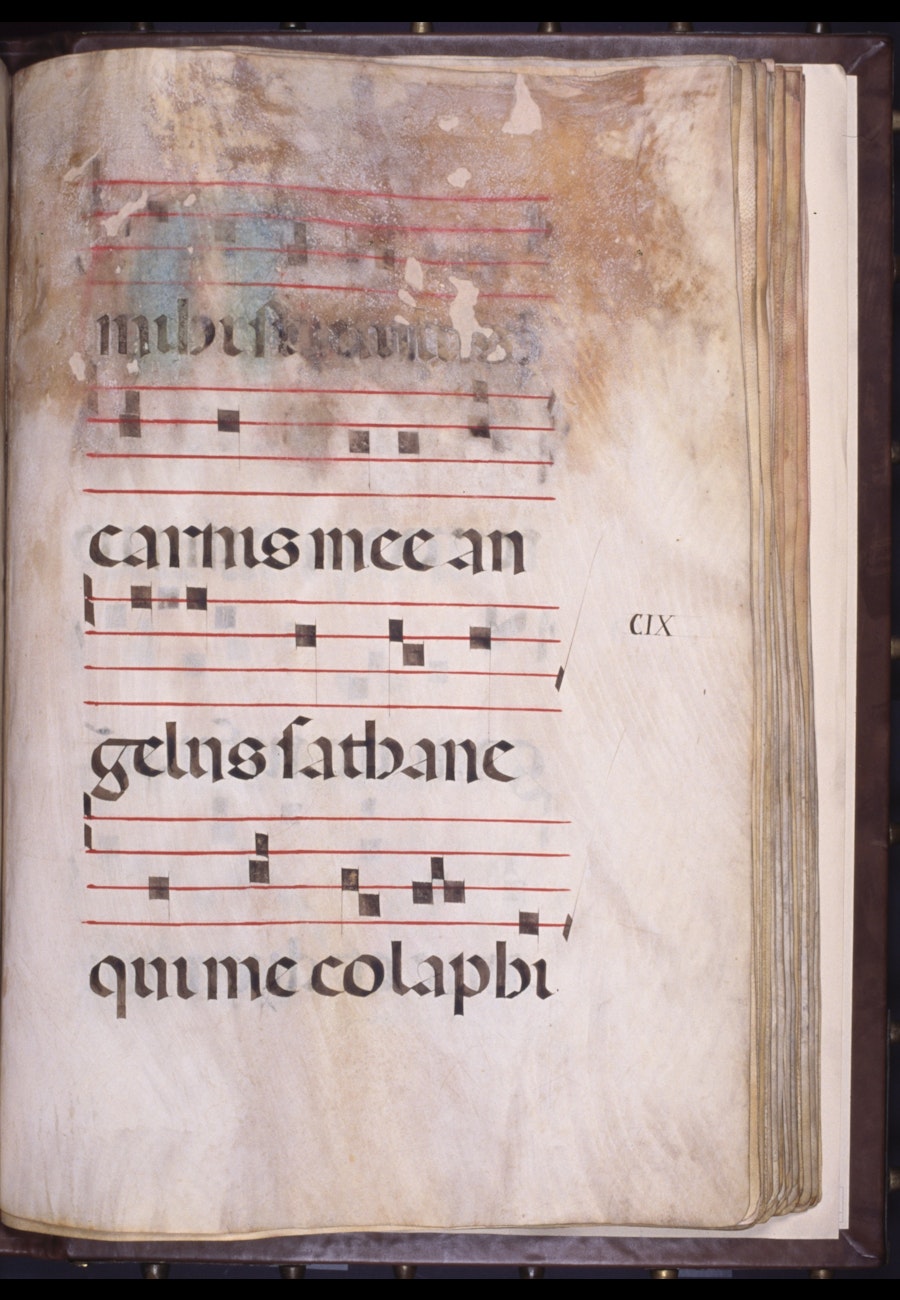 mihi stimulus
carnis mee an
CIX
gelus sathane
qui me colaphi